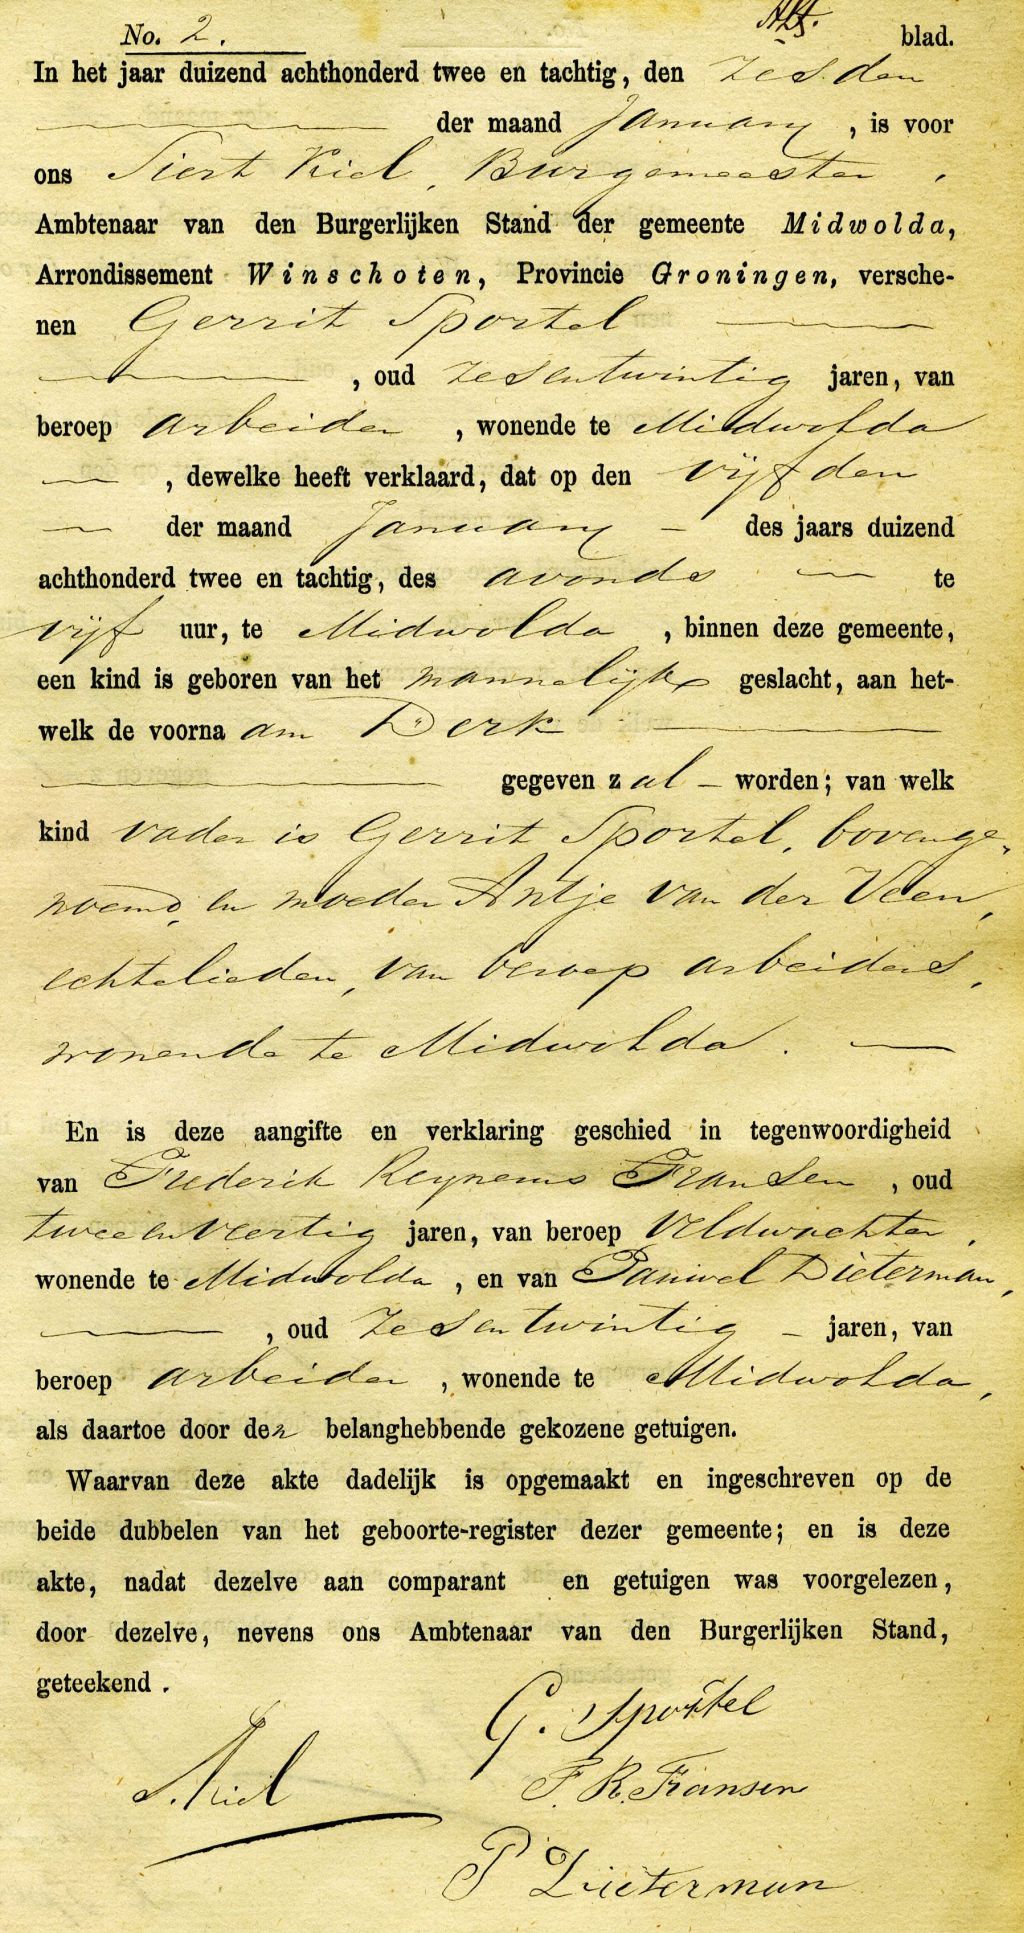 No. 2. blad.
In het jaar duizend achthonderd twee en tachtig, den zesden
der maand January, is voor
ons Siert Kiel, Burgemeester,
Ambtenaar van den Burgerlijken Stand der gemeente Midwolda,
Arrondissement Winschoten, Provincie Groningen, versche-
nen Gerrit Sportel
, oud zesentwintig jaren, van
beroep arbeider, wonende te Midwolda
, dewelke heeft verklaard, dat op den vijfden
der maand January - des jaars duizend
achthonderd twee en tachtig, des avonds te
vijf uur, te Midwolda, binnen deze gemeente,
een kind is geboren van het mannelijke geslacht, aan het-
welk de voornaam Derk
gegeven zal - worden; van welk
kind vader is Gerrit Sportel, bovenge-
noemd, en moeder Antje van der Veen,
echtelieden, van beroep arbeiders,
wonende te Midwolda. -
En is deze aangifte en verklaring geschied in tegenwoordigheid
van Frederik Fransen, oud
tweeenveertig jaren, van beroep veldwachter,
wonende te Midwolda, en van Dieterman,
, oud zesentwintig - jaren, van
beroep arbeider, wonende te Midwolda,
als daartoe door den belanghebbende gekozene getuigen.
Waarvan deze akte dadelijk is opgemaakt en ingeschreven op de
beide dubbelen van het geboorte-register dezer gemeente; en is deze
akte, nadat dezelve aan comparant en getuigen was voorgelezen,
door dezelve, nevens ons Ambtenaar van den Burgerlijken Stand,
geteekend.
G. Sportel
S. Kiel
F. R. Fransen
P Dieterman